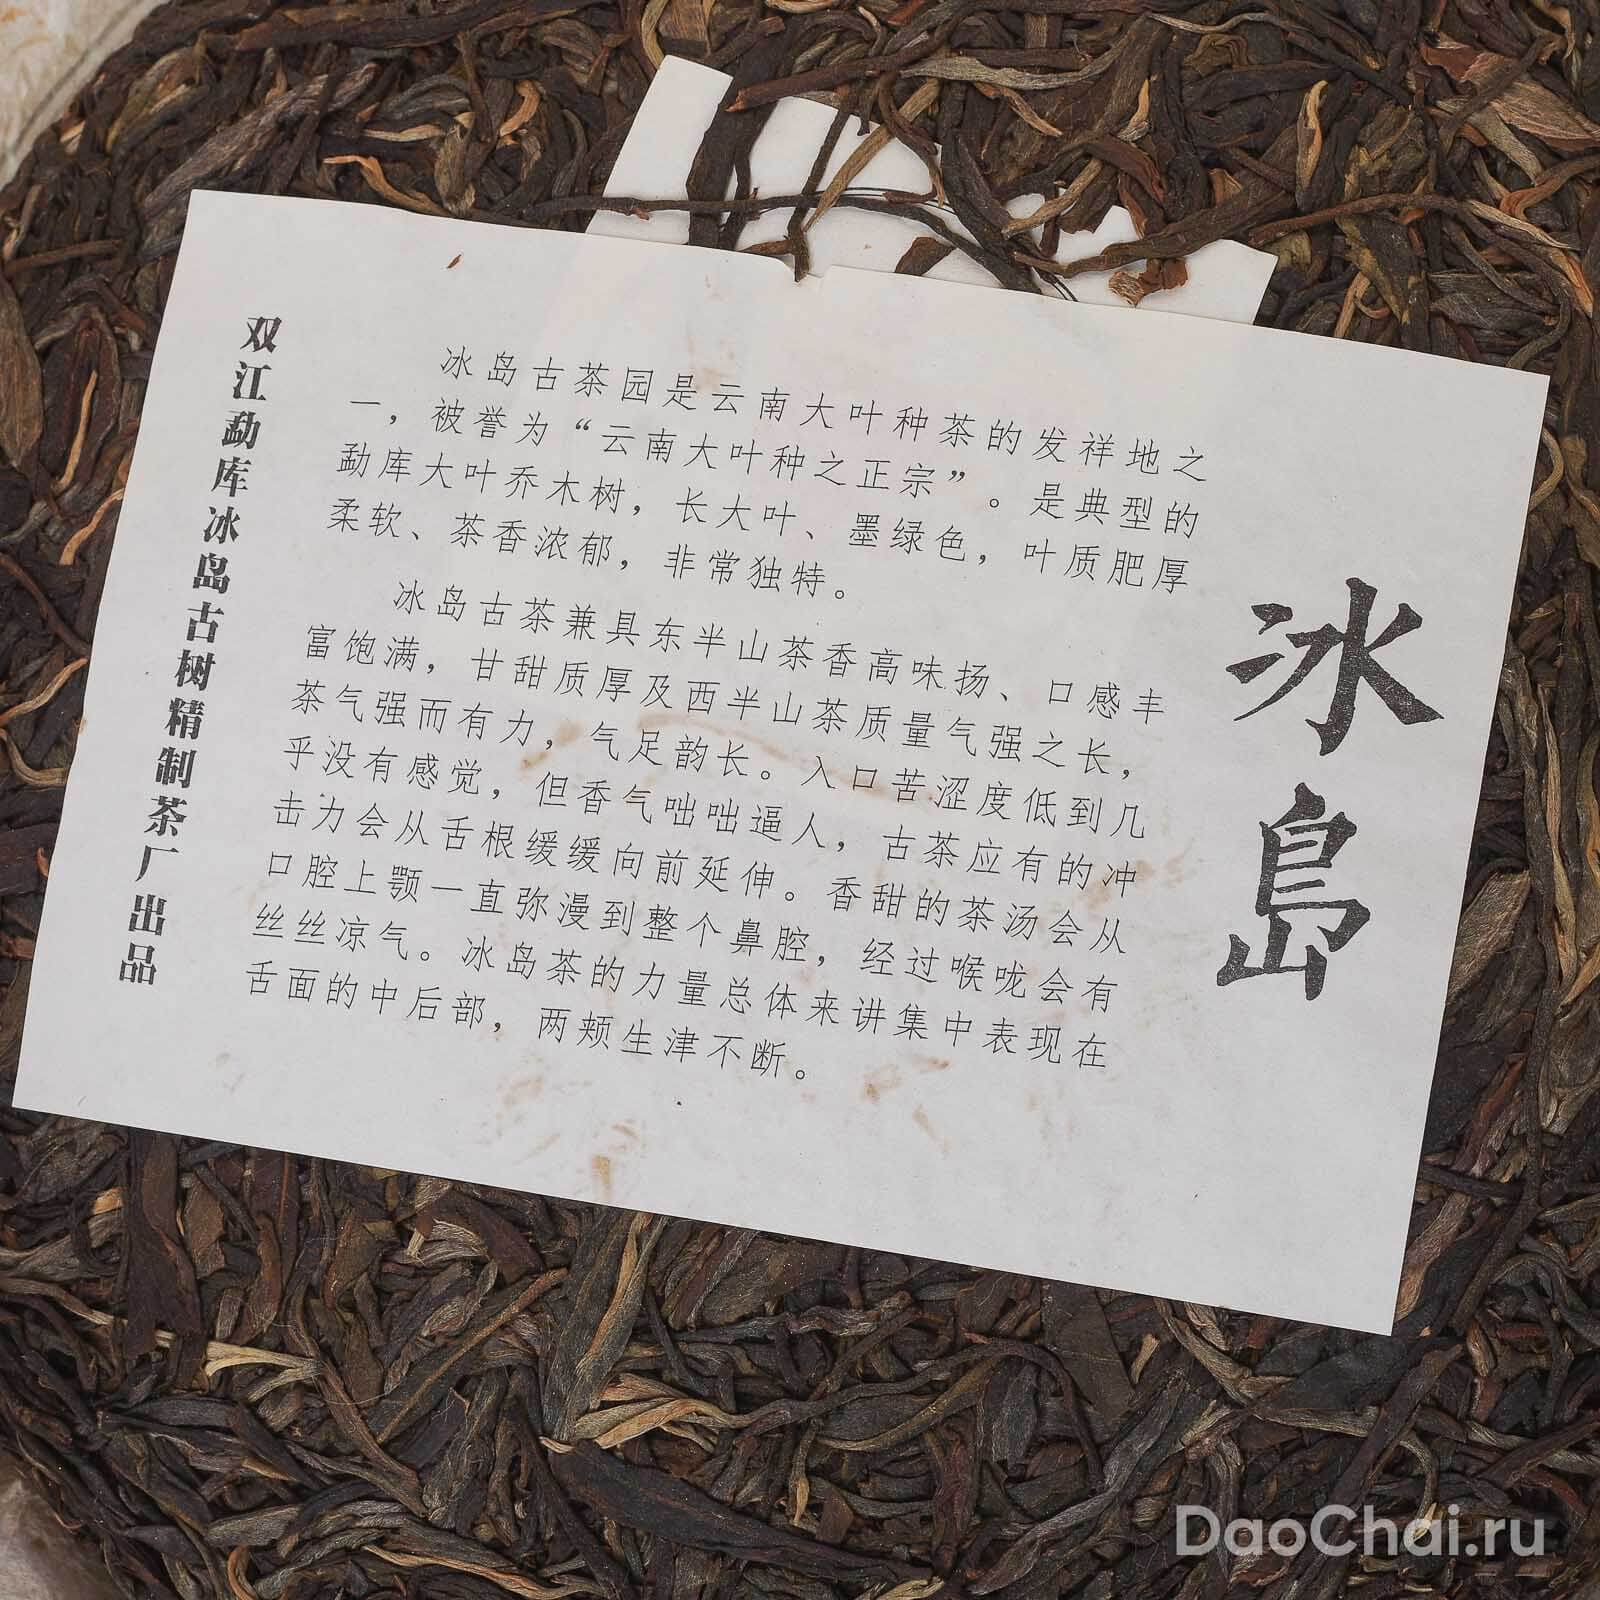 冰島
冰岛古茶园是云南大叶种茶的发祥地之
一，被誉为“云南大叶种之正宗”。是典型的
勐库大叶乔木树，长大叶、墨绿色，叶质肥厚
柔软、茶香浓郁，非常独特。
冰岛古茶兼具东半山茶香高味扬、口感丰
富饱满，甘甜质厚及西半山茶质量气强之长，
茶气强而有力，气足韵长。入口苦涩度低到几
乎没有感觉，但香气咄咄逼人，古茶应有的冲
击力会从舌根缓缓向前延伸。香甜的茶汤会从
口腔上颚一直弥漫到整个鼻腔，经过喉咙会有
丝丝凉气。冰岛茶的力量总体来讲集中表现在
舌面的中后部，两颊生津不断。
双江勐库冰岛古树精制茶厂出品
DaoChai.ru